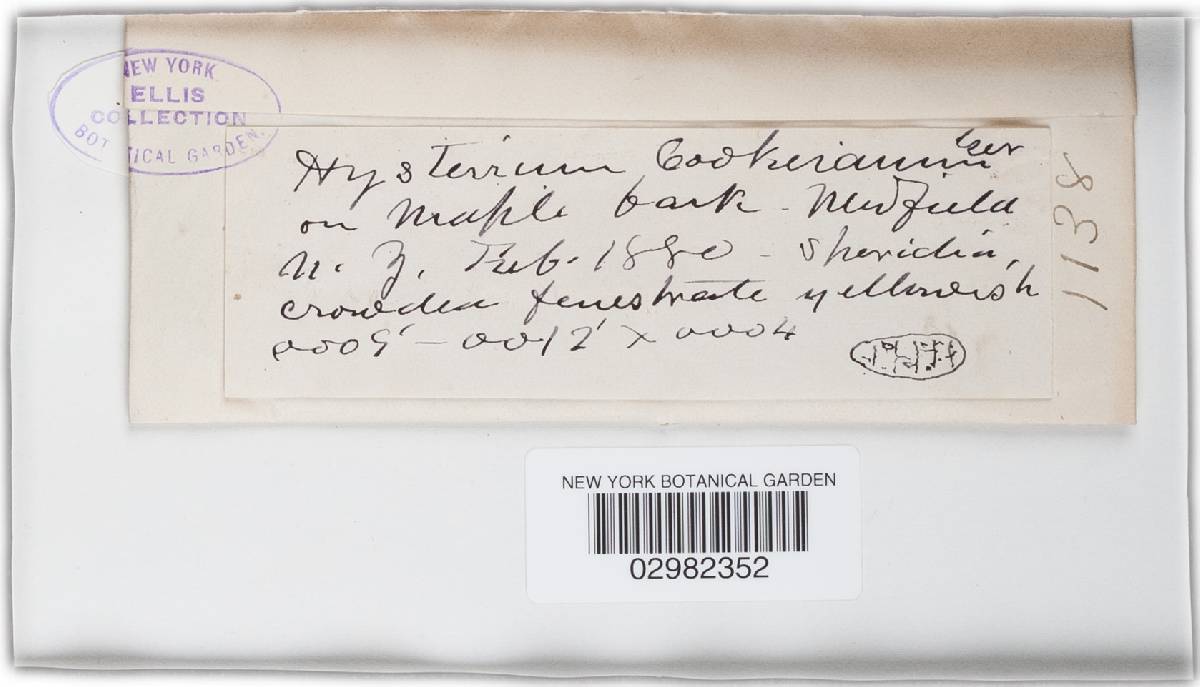 NEW YORK
ELLIS
COLLECTION
BOTANICAL GARDEN.
Hysterium Cookerianum Ger
on Maple bark - Medfield
N. Y. Feb. 1880 - Sporidia,
crowded fenestrate yellowish
.0009' - .0012' x .0004
1138
NEW YORK BOTANICAL GARDEN
02982352